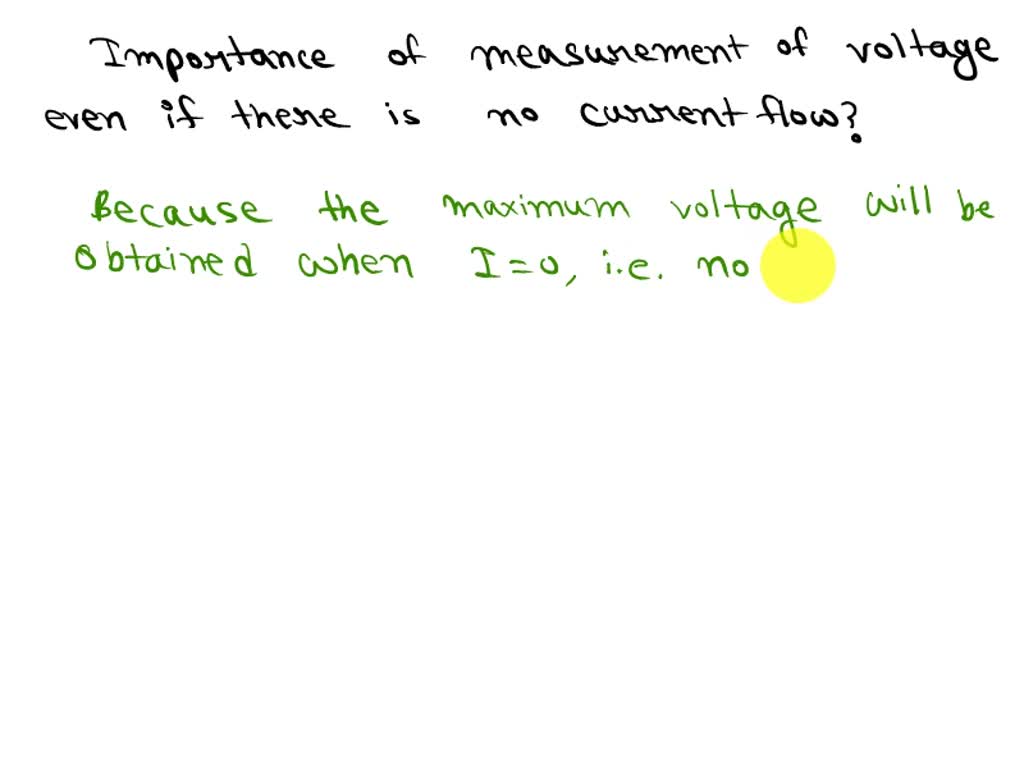 Importance of measurement of voltage
even if there is no current flow?
Because the maximum voltage will be
obtained when I=0, i.e. no